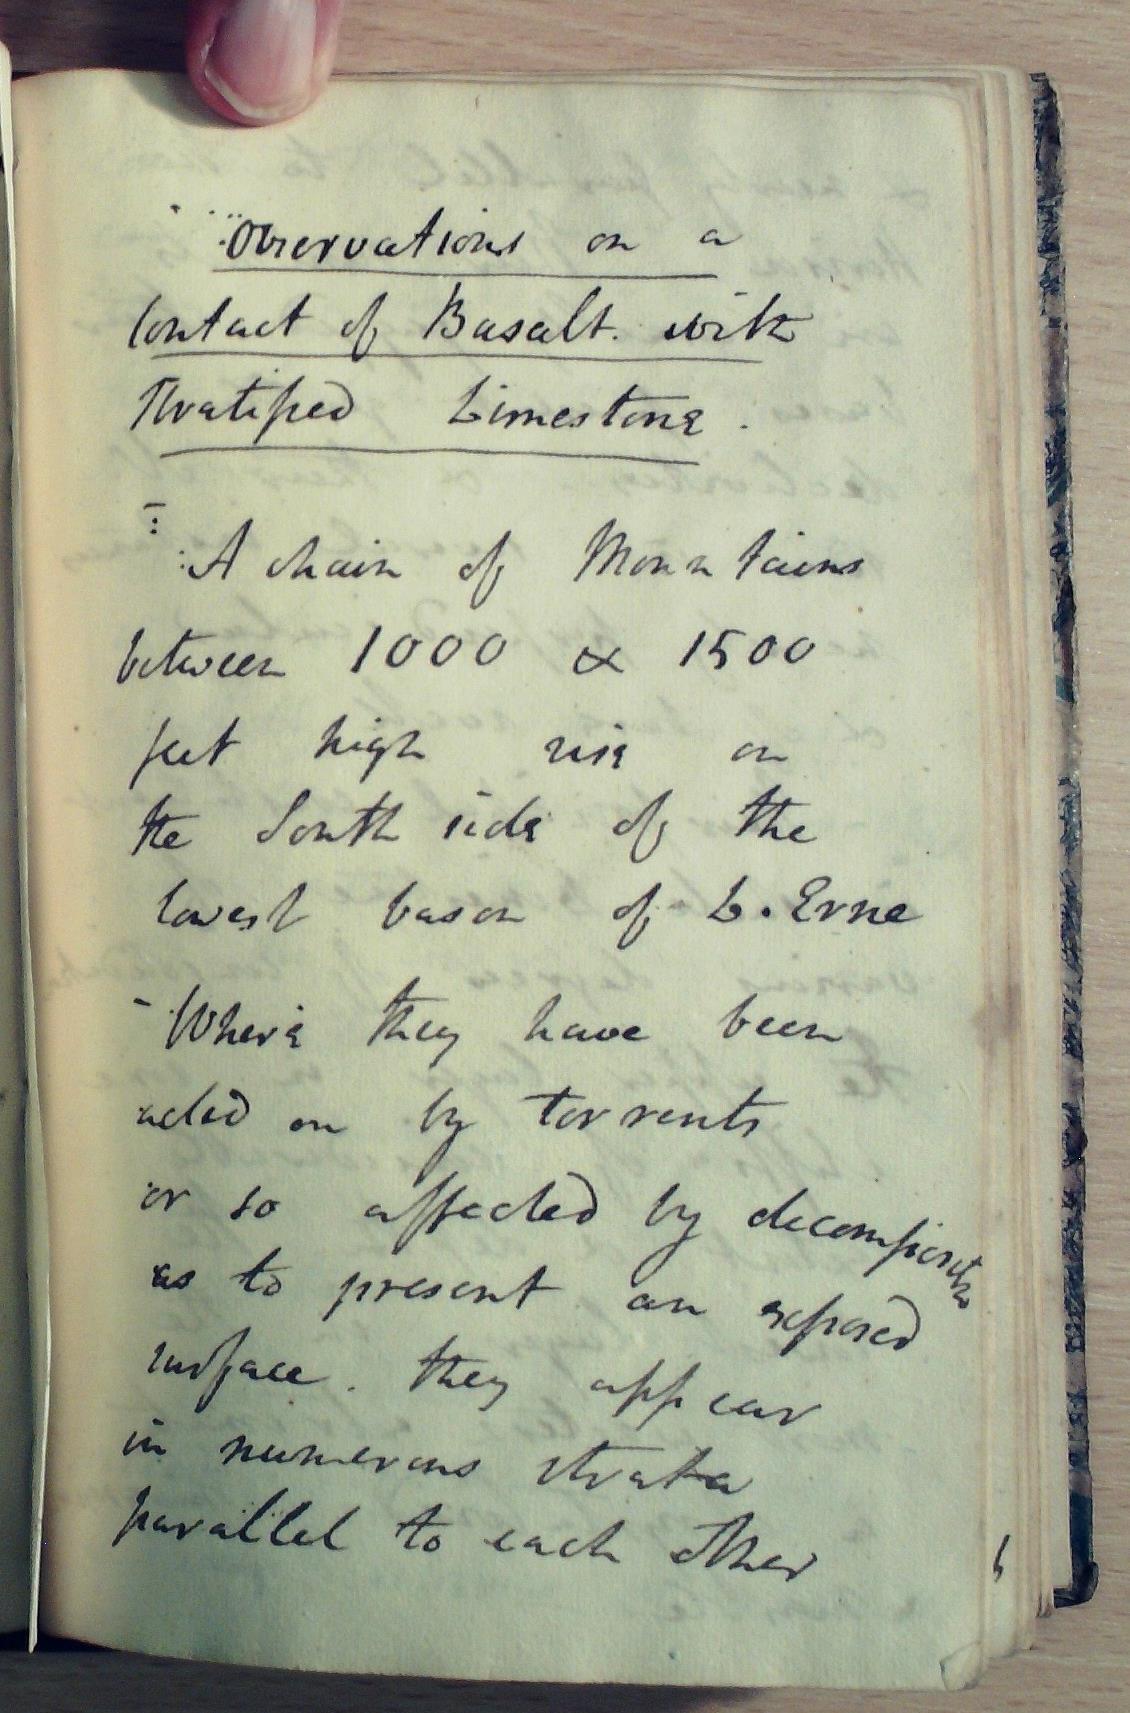 Observations on a
Contact of Basalt. with
Stratified Limestone.
A chain of Mountains
between 1000 & 1500
feet high rise on
the South side of the
lowest bason of L. Erne
- Where they have been
acted on by torrents
or so affected by decomposition
as to present an exposed
surface. they appear
in numerous strata
parallel to each other